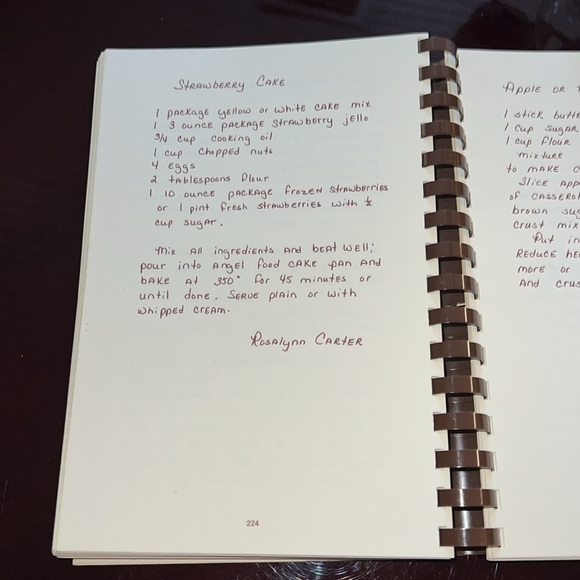 Strawberry Cake
1 package yellow or white cake mix
1 3 ounce package strawberry jello
3/4 cup cooking oil
1 cup chopped nuts
4 eggs
2 tablespoons flour
1 10 ounce package frozen strawberries
or 1 pint fresh strawberries with ½
cup sugar.
Mix all ingredients and beat well;
pour into angel food cake pan and
bake at 350° for 45 minutes or
until done. Serve plain or with
whipped cream.
Rosalynn Carter
224
Apple or
1 stick butte
1 cup sugar
1 cup flour
mixture
to make c
Slice app
of casserol
brown sug
crust mix
Put in
Reduce he
more or
and crus